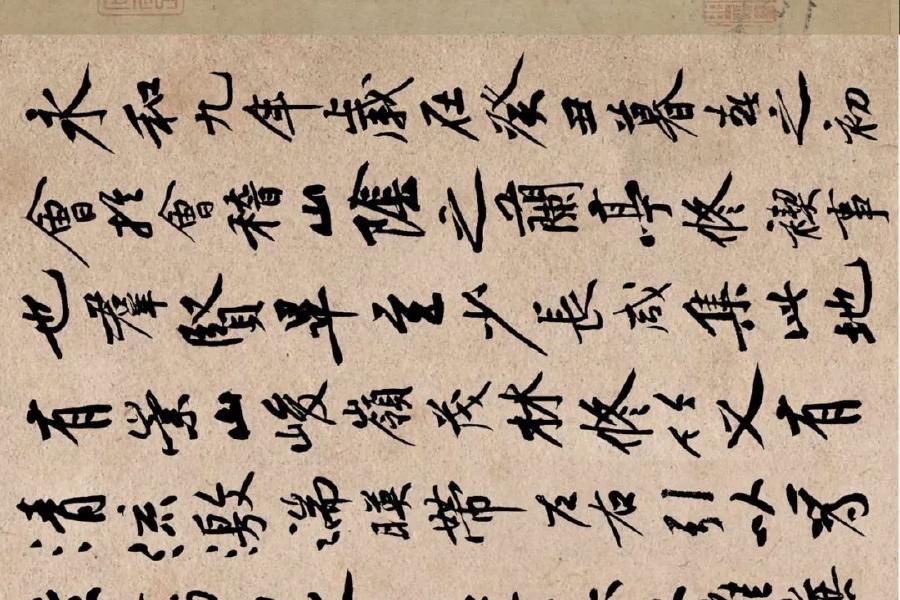 永和九年歲在癸丑暮春之初
會于會稽山陰之蘭亭脩禊事
也羣賢畢至少長咸集此地
有崇山峻嶺茂林脩竹又有
清流激湍暎帶左右引以為